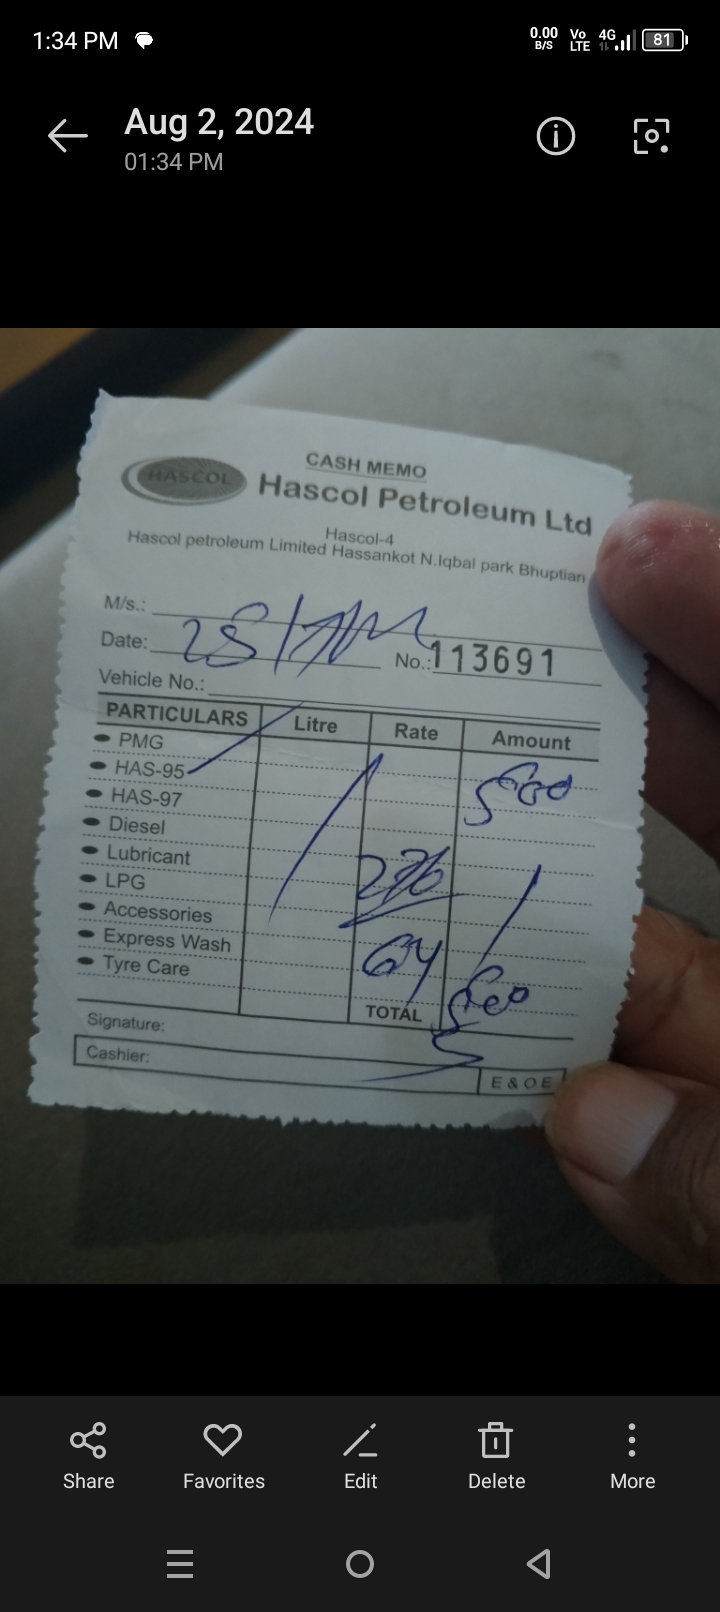 1:34 PM 0.00 B/S Vo LTE 4G 81
Aug 2, 2024
01:34 PM
CASH MEMO
HASCOL Hascol Petroleum Ltd
Hascol-4
Hascol petroleum Limited Hassankot N.Iqbal park Bhuptian
M/s.:
Date: 28/ No.: 113691
Vehicle No.:
PARTICULARS Litre Rate Amount
PMG
HAS-95
HAS-97
Diesel
Lubricant
LPG
Accessories
Express Wash
Tyre Care
TOTAL
Signature:
Cashier:
E & O E
Share Favorites Edit Delete More